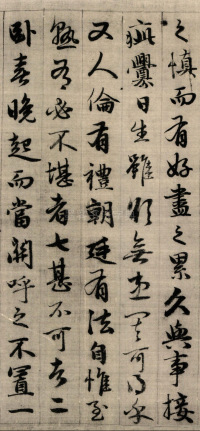 之慎而有好盡之累久與事接
疵釁日生雖欲無患其可得乎
又人倫有禮朝廷有法自惟至
熟有必不堪者七甚不可者二
卧喜晚起而當關呼之不置一